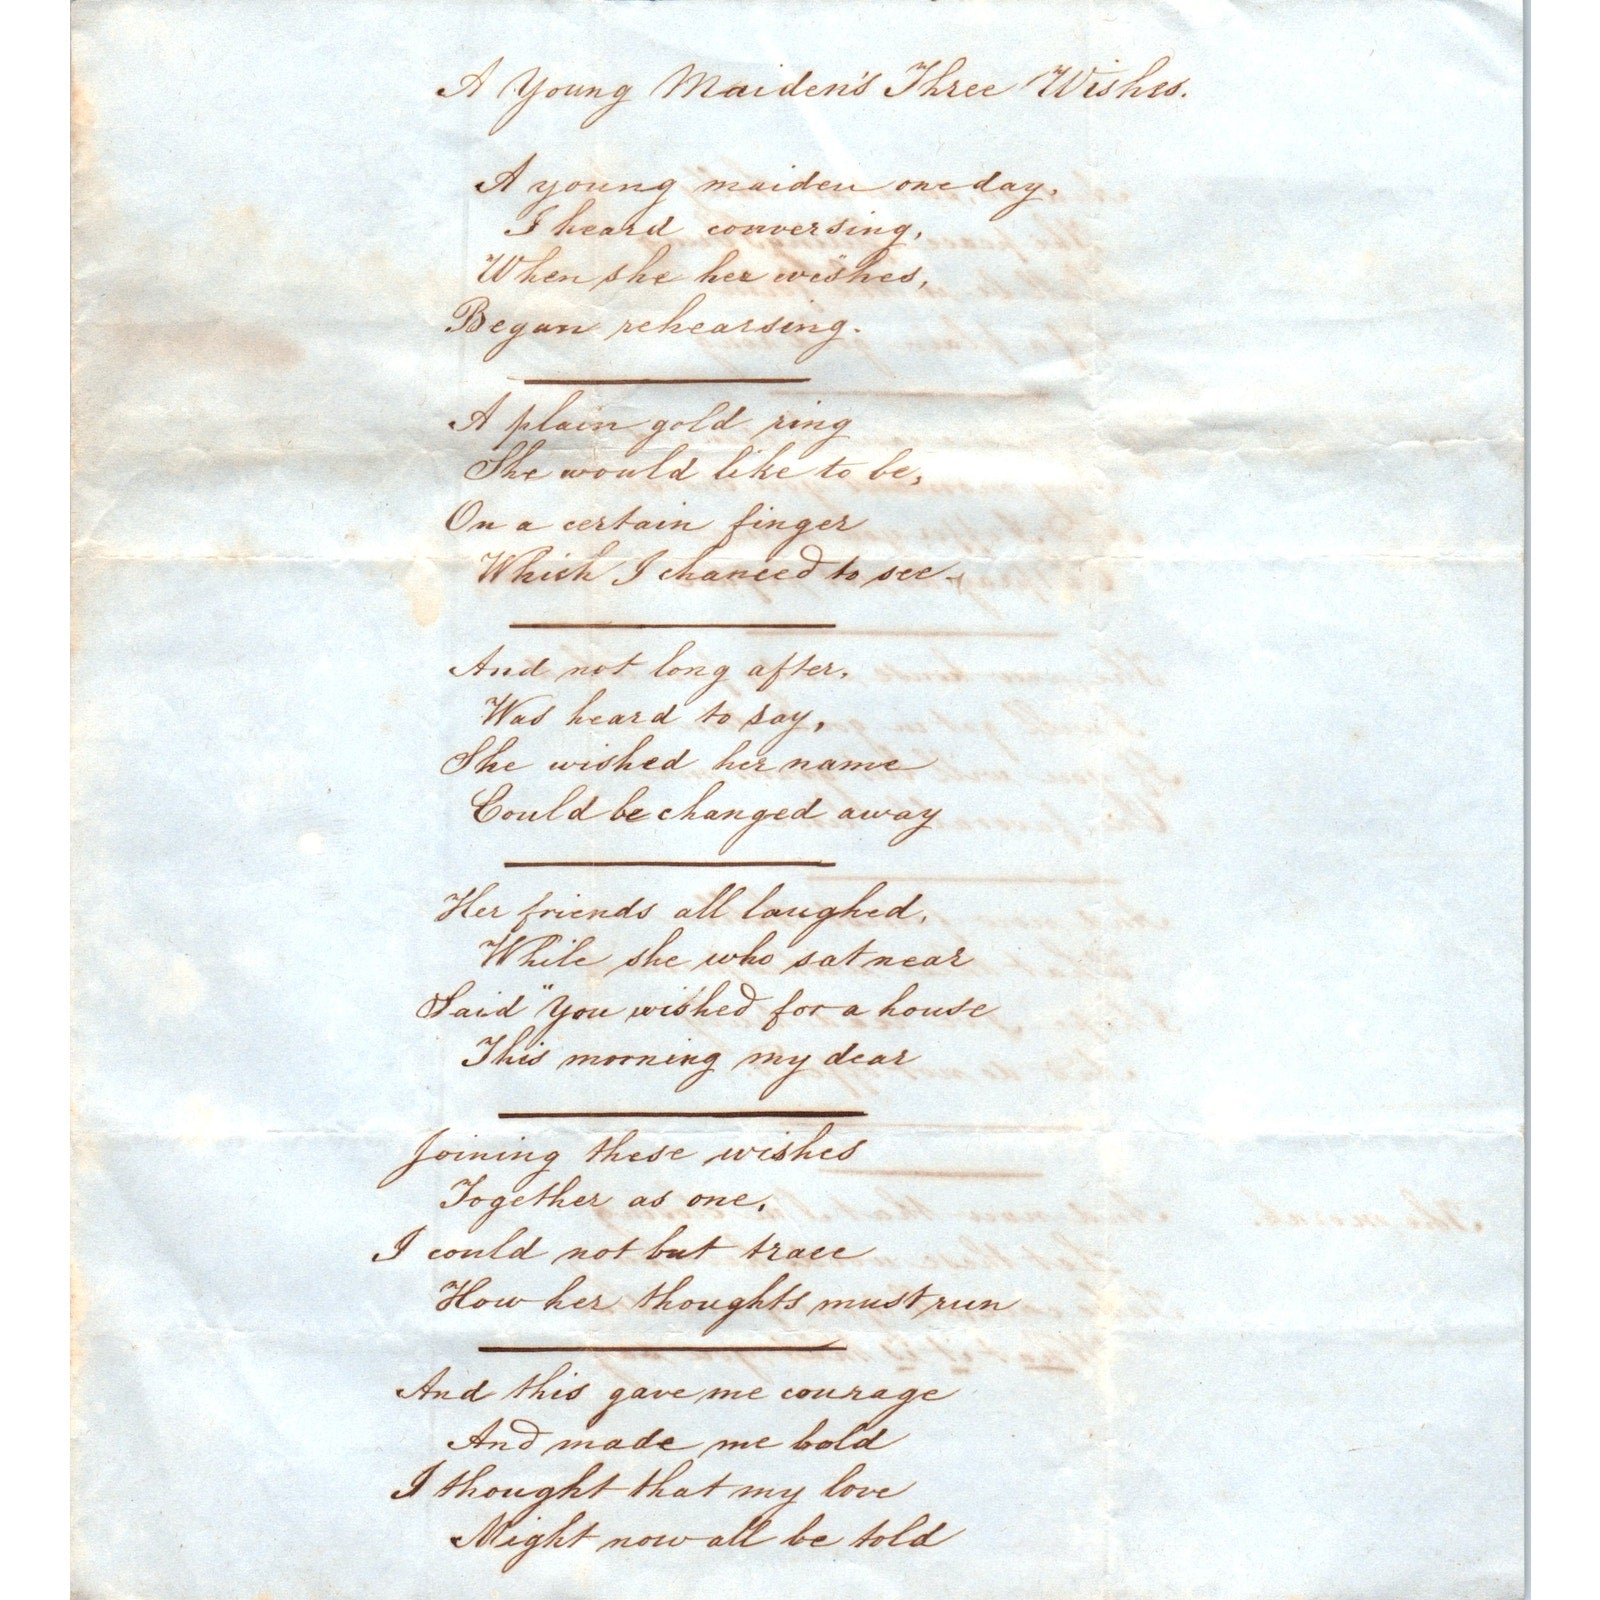 A Young Maiden's Three Wishes.
A young maiden one day,
I heard conversing,
When she her wishes,
Began rehearsing.
A plain gold ring
She would like to be,
On a certain finger
Which I chanced to see.
And not long after,
Was heard to say,
She wished her name
Could be changed away
Her friends all laughed,
While she who sat near
Said "You wished for a house
This morning my dear
Joining these wishes
Together as one,
I could not but trace
How her thoughts must run
And this gave me courage
And made me bold
I thought that my love
Might now all be told